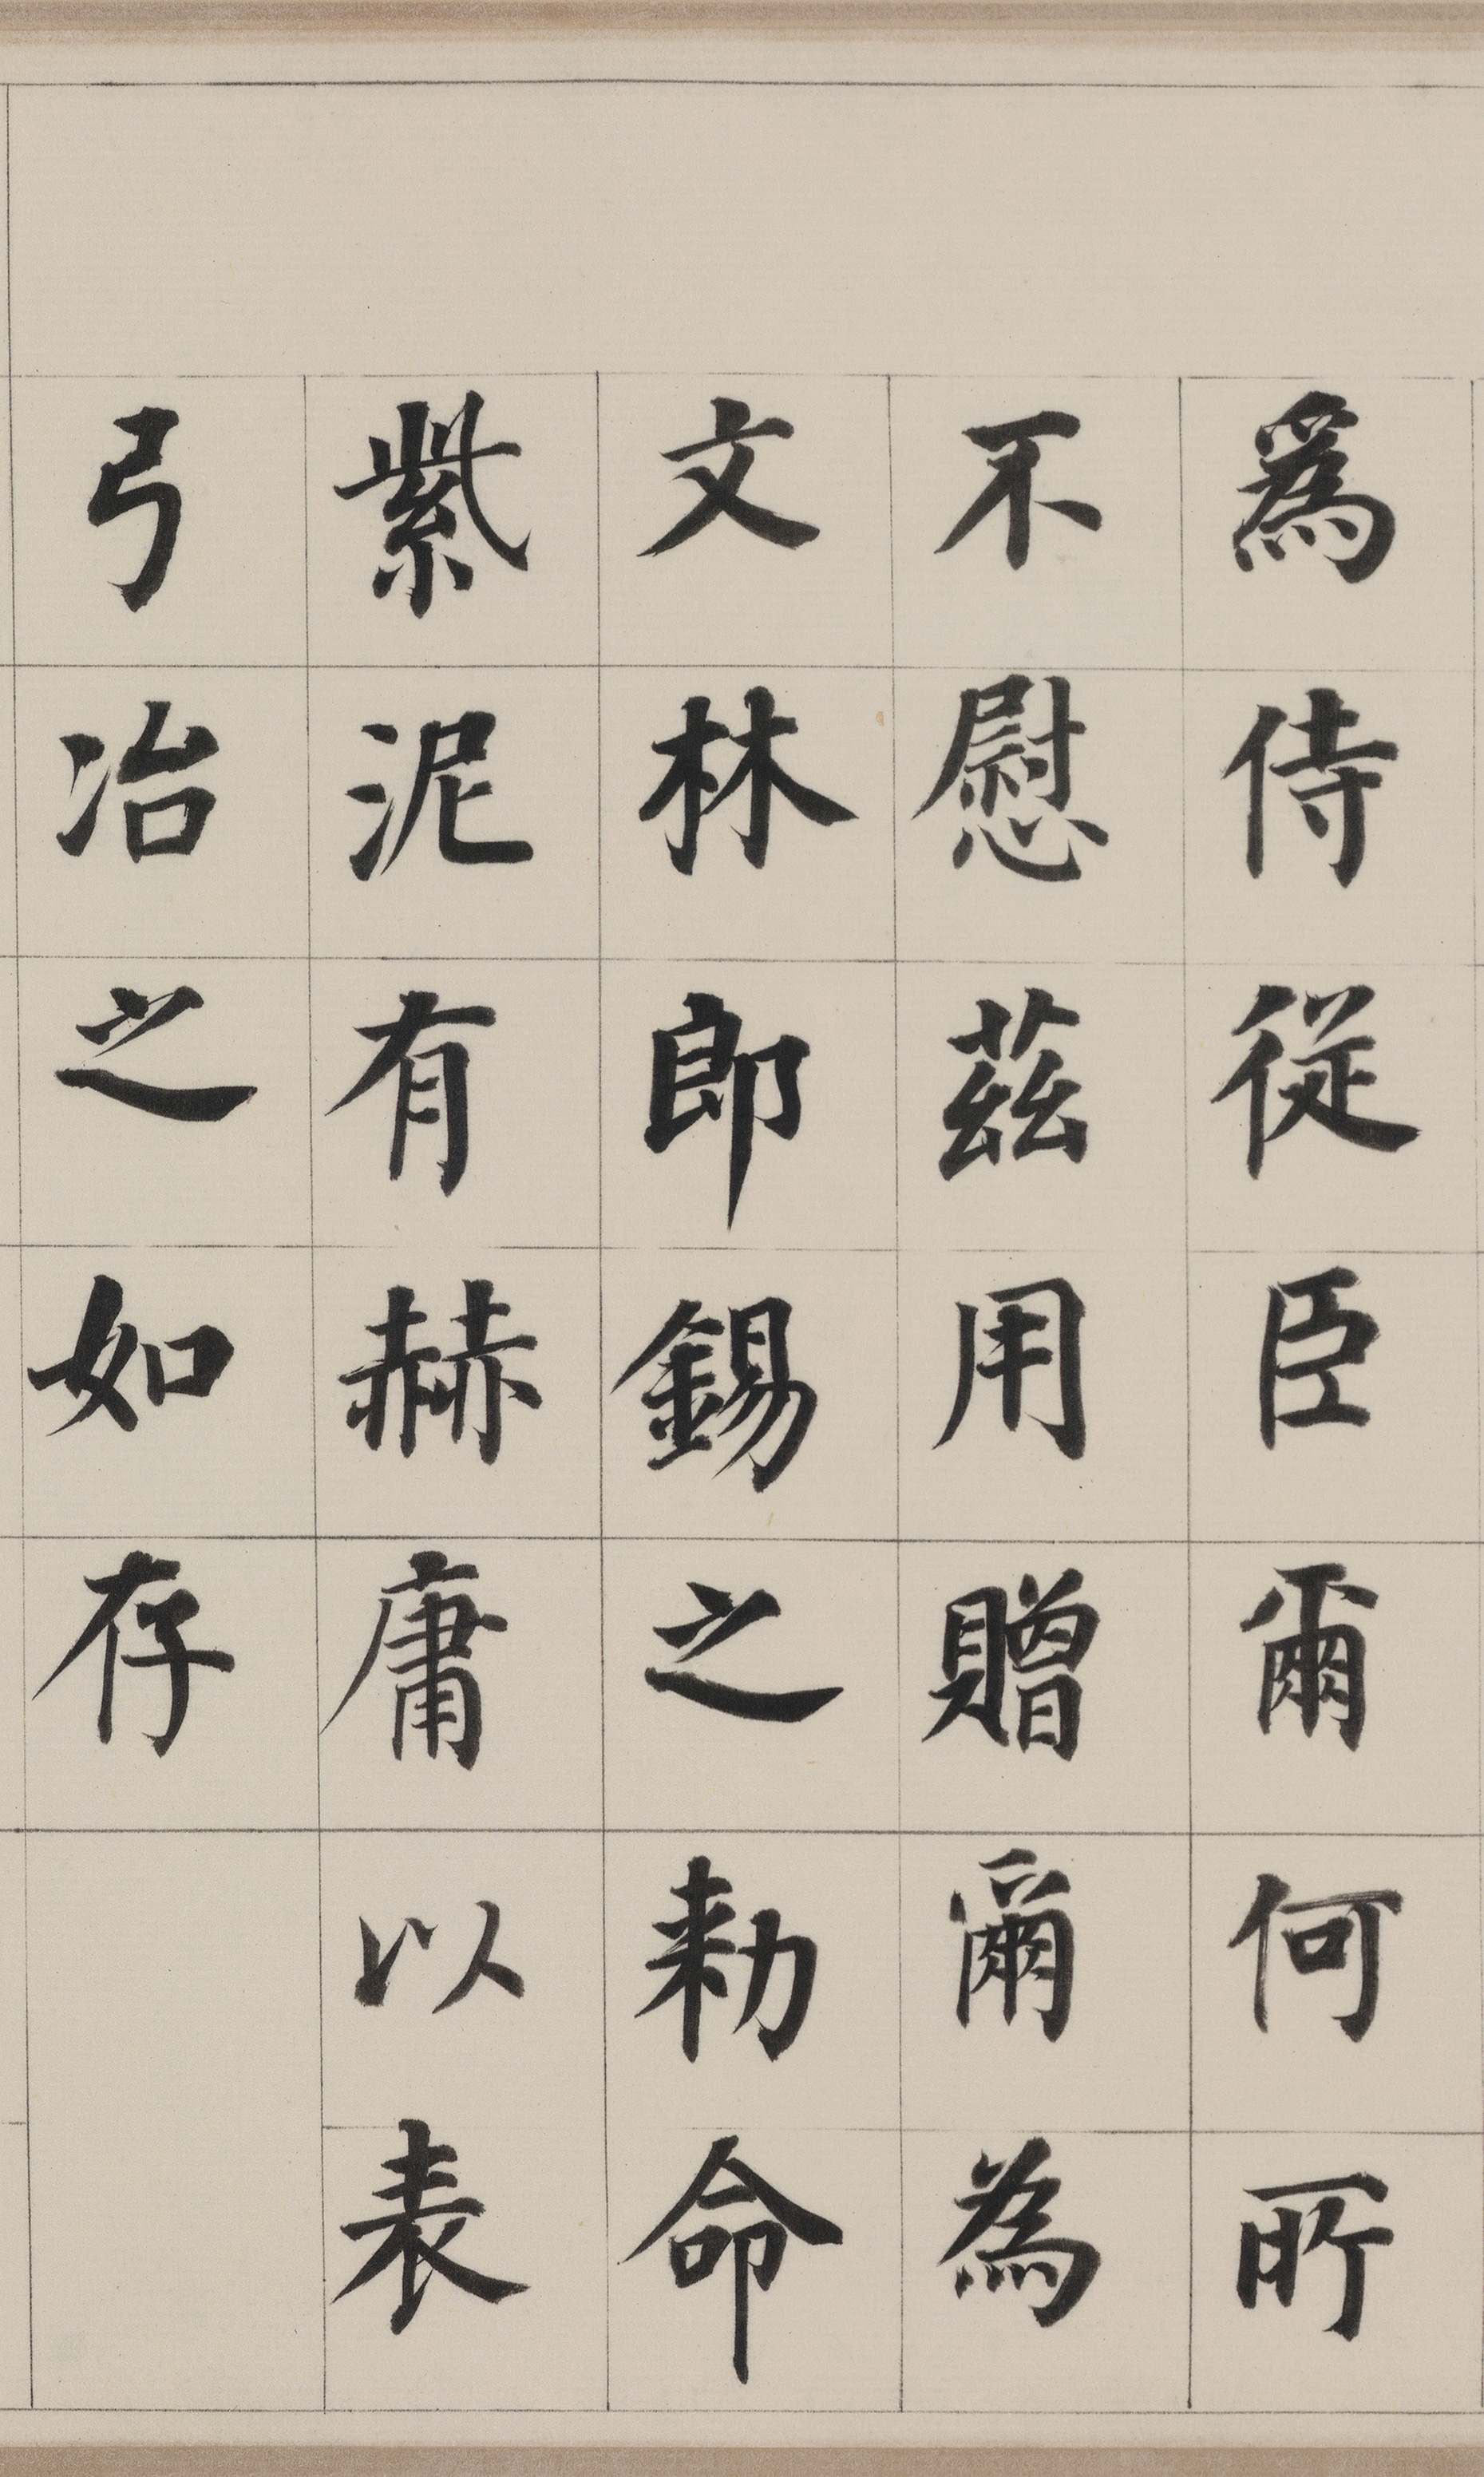 爲侍從臣爾何所
不慰茲用贈爾為
文林郎錫之勑命
紫泥有赫庸以表
弓冶之如存